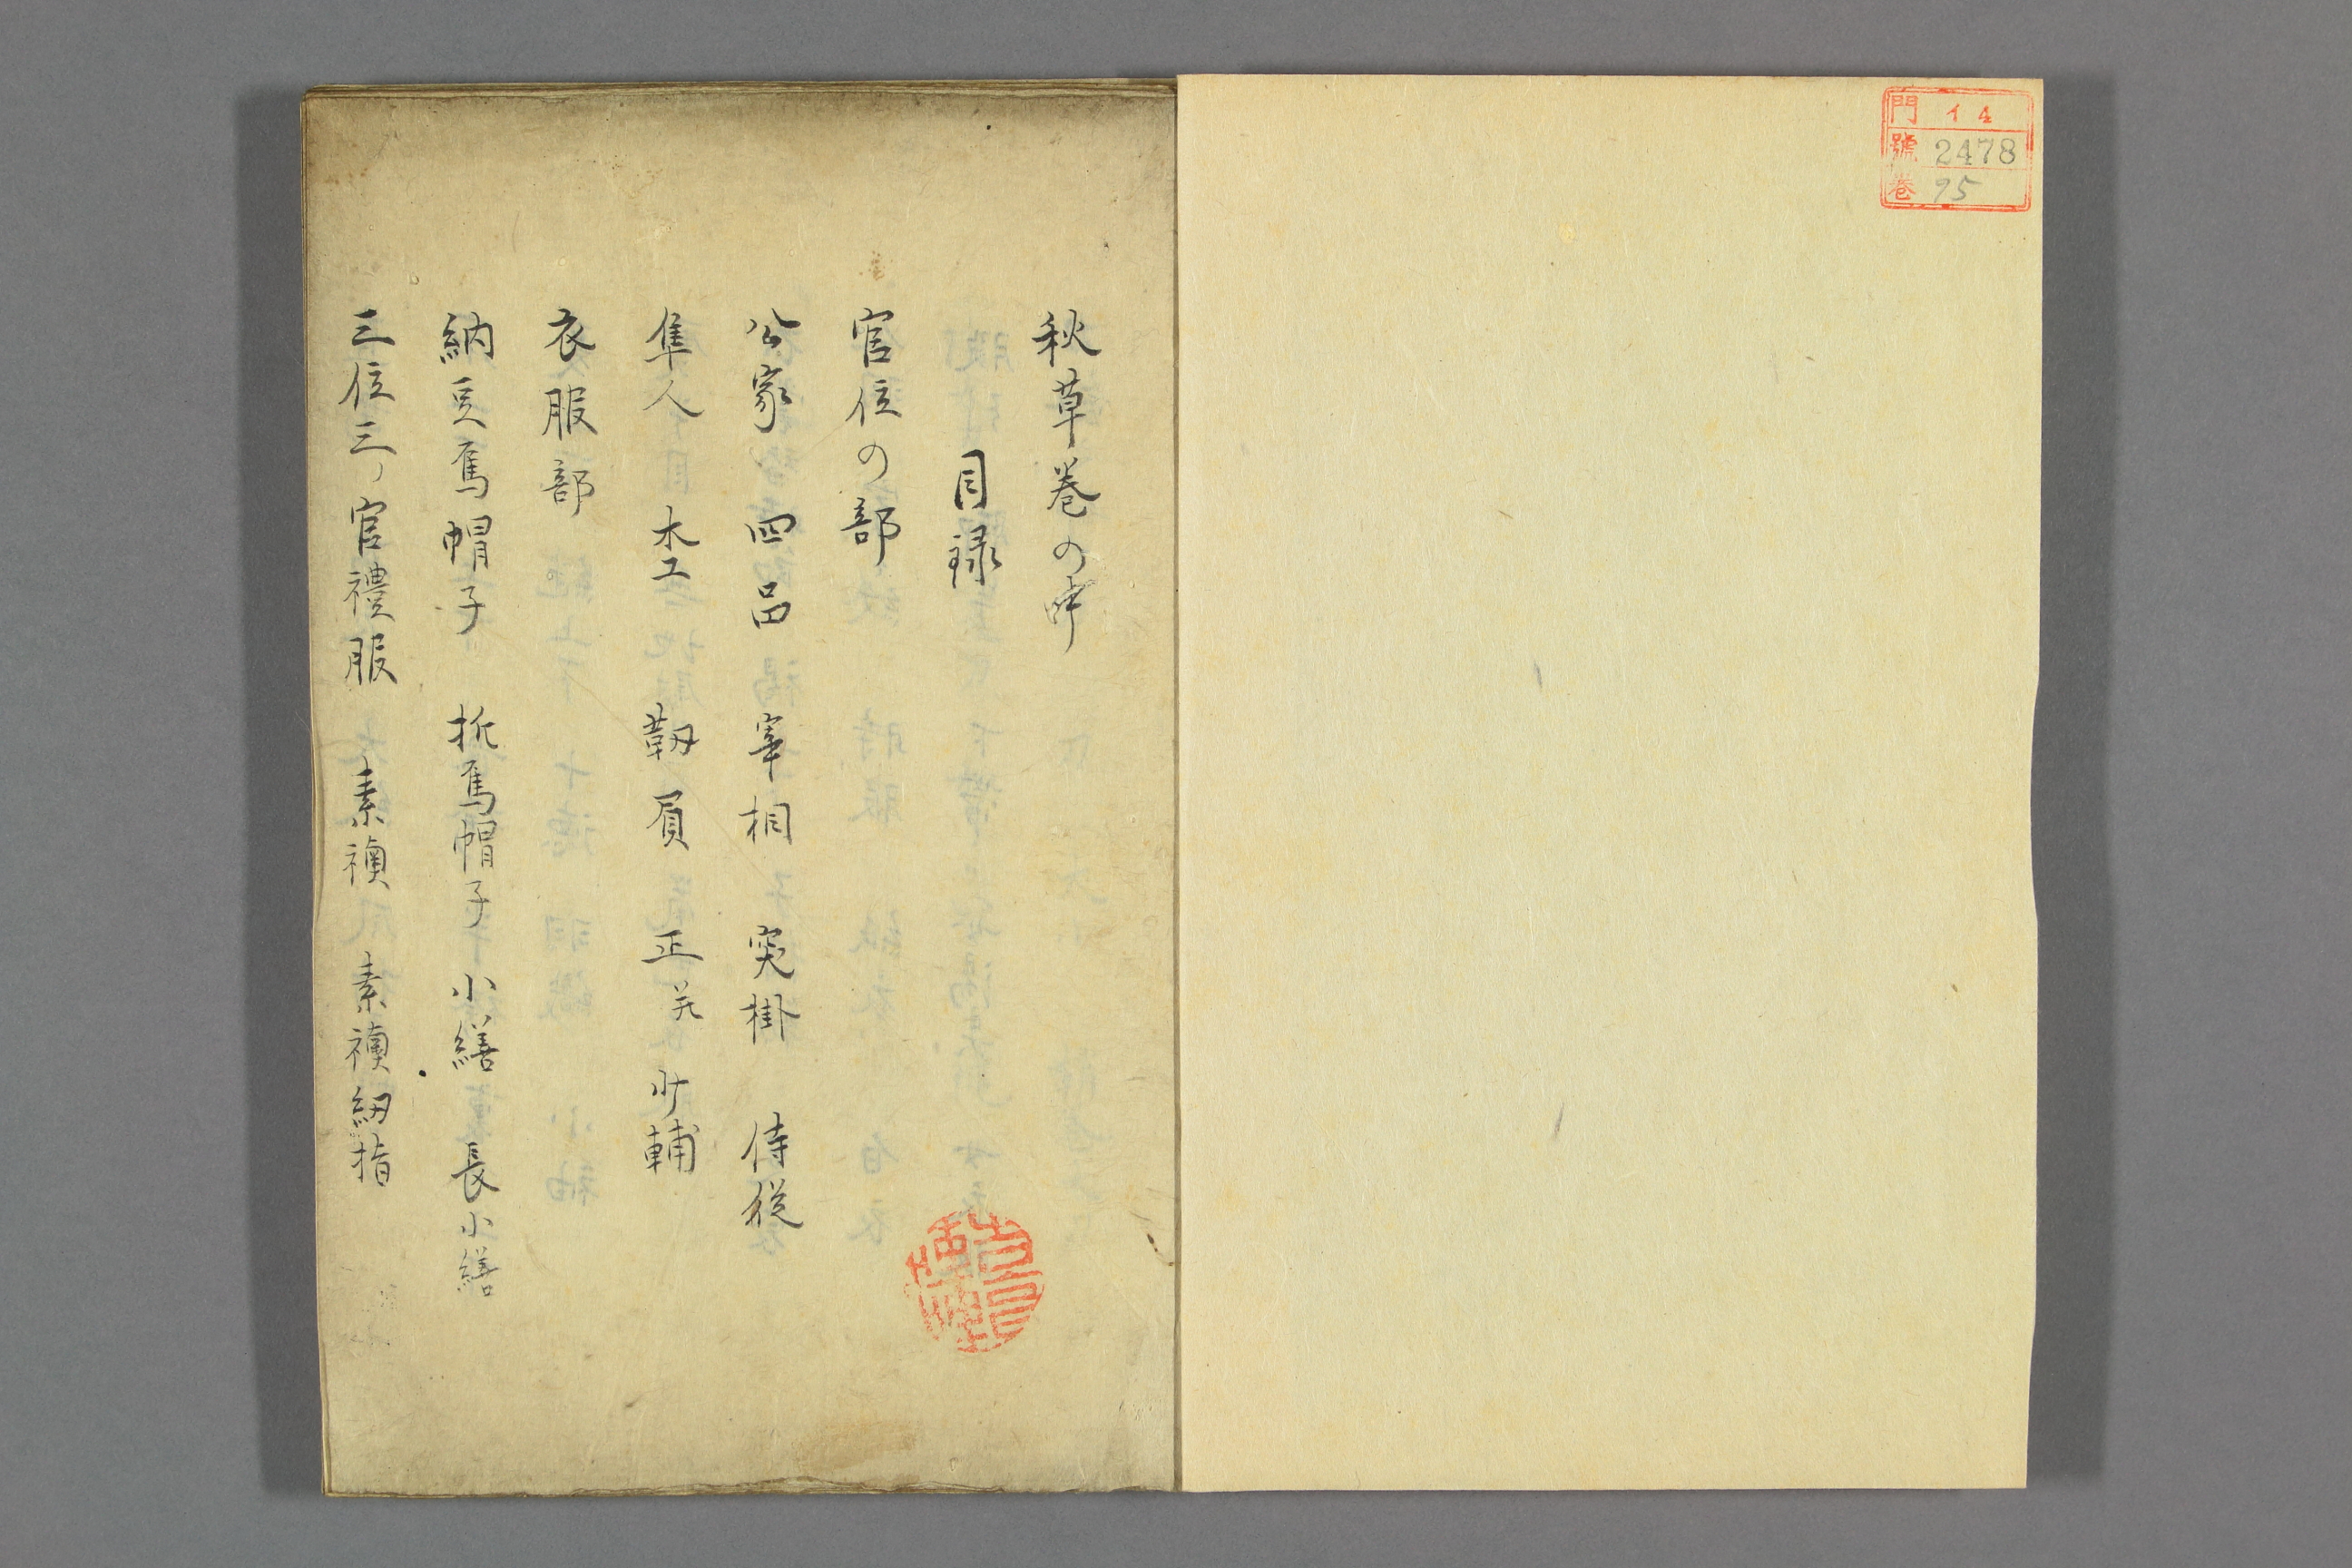 門 イ4
號 2478
巻 95
秋草巻の中
目録
官位の部
公家 四品 宰相 突掛 侍従
隼人 杢 靱負 正 允 少輔
衣服部
納豆烏帽子 折烏帽子 小結 長小結
三位三官禮服 素襖 素襖 指